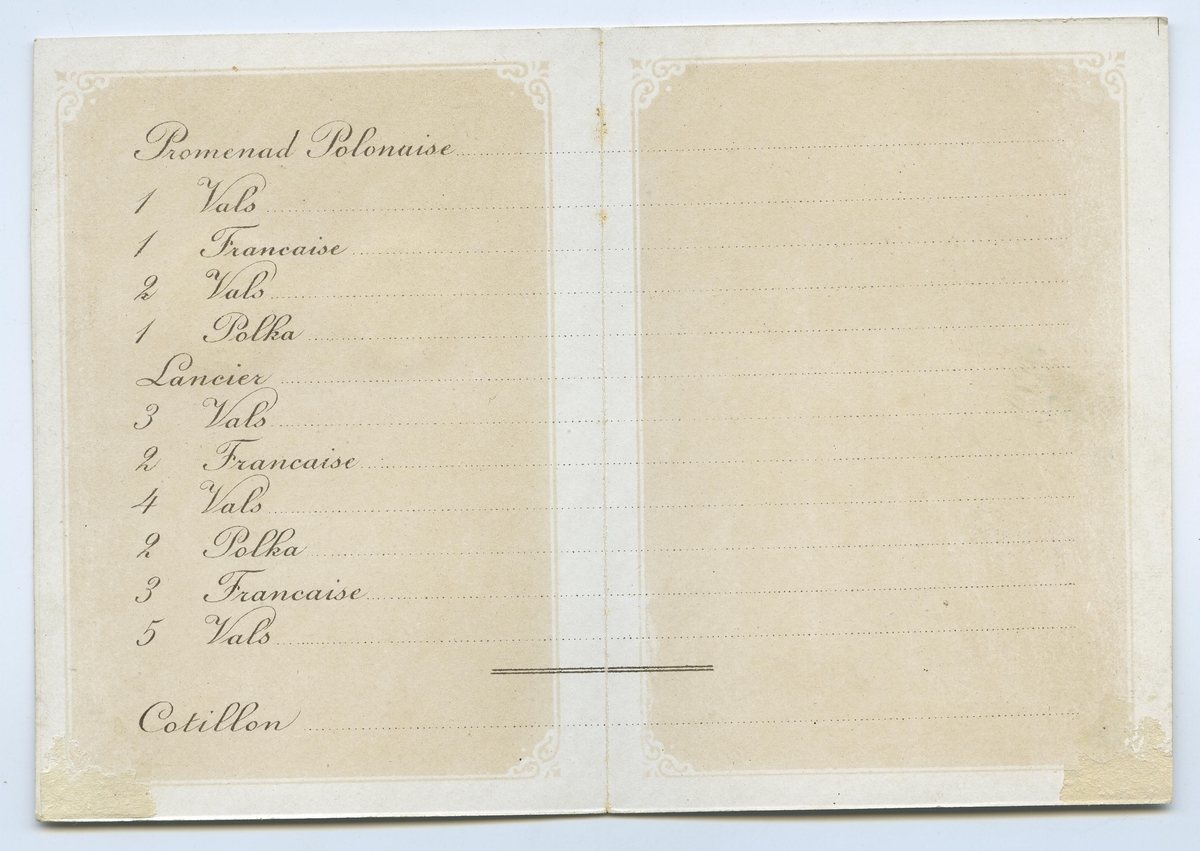 Promenad Polonaise
1 Vals
1 Francaise
2 Vals
1 Polka
Lancier
3 Vals
2 Francaise
4 Vals
2 Polka
3 Francaise
5 Vals
Cotillon